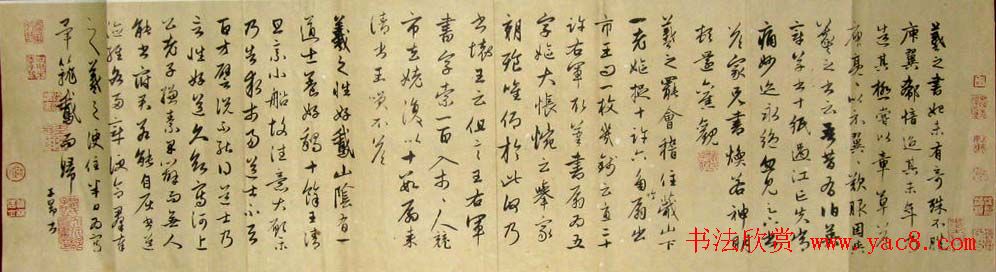 羲之書初未有奇殊不勝
庾翼郗愔迨其末年
造其極嘗以章草
庾亮以示翼歎服因與
羲之書云吾昔有伯英
章草書十紙過江亡失常
痛妙迹永絕忽見足下
答家兄書煥若神明
頓還舊觀
羲之罷會稽住蕺山下
一老嫗捉十許六角竹扇出
市王問一枚幾錢云直二十
許右軍取筆書扇為五
字嫗大悵惋云舉家
朝飱惟仰於此何乃
書壞王云但言王右軍
書字索一百入市市人競
市去姥復以十數扇來
請書王笑不答
羲之性好鵝山陰有一
道士養好鵝十餘王清
旦乘小船故往意大願樂
乃告求市易道士不言
百方譬說不能得道士乃
言性好道久欲寫河上
公老子縑素早辦而無人
能書府君若能自屈書道
德經各兩章便合群奉
之羲之便住半日為寫
畢籠鵝而歸 子昂書
书法欣赏
www.yac8.com